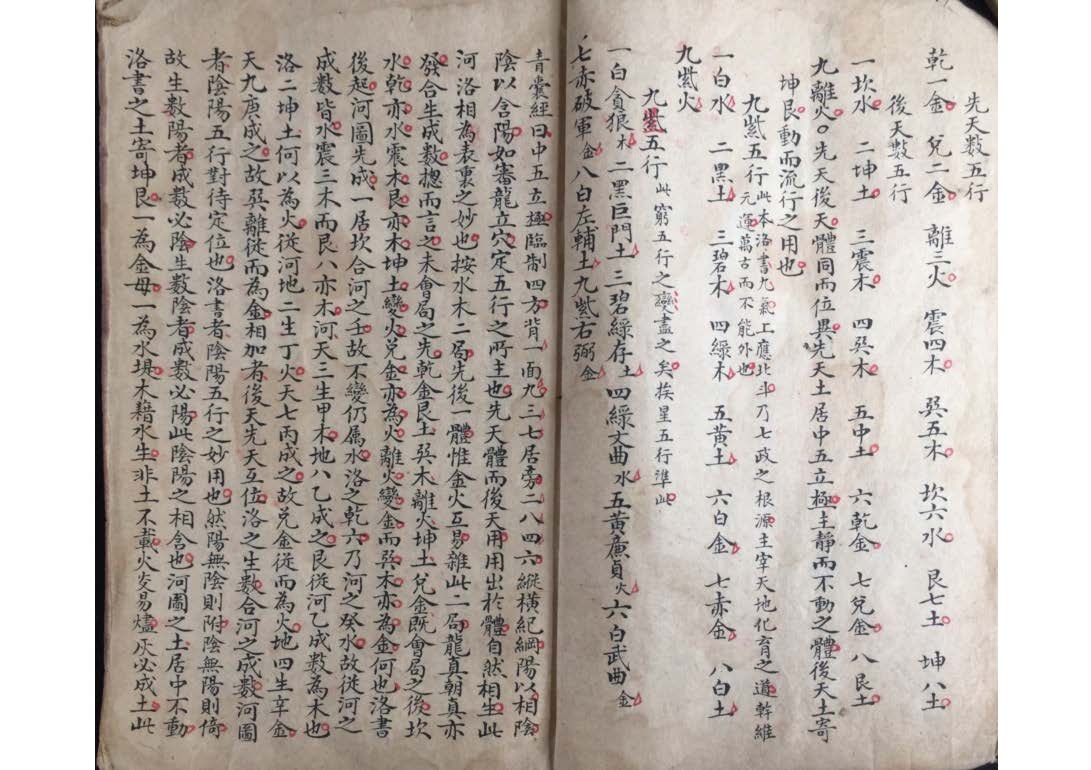 先天數五行
乾一金 兌二金 離三火 震四木 巽五木 坎六水 艮七土 坤八土
後天數五行
一坎水 二坤土 三震木 四巽木 五中土 六乾金 七兌金 八艮土
九離火○先天後天體同而位異先天土居中五立極主靜而不動之體後天土寄
坤艮動而流行之用也
九紫五行此本洛書九氣上應北斗乃七政之根源主宰天地化育之道幹維
元運萬古而不能外也
一白水 二黑土 三碧木 四綠木 五黃土 六白金 七赤金 八白土
九紫火
九紫五行此窮五行之變盡之矣挨星五行準此
一白貪狼木二黑巨門土三碧綠存土四綠文曲水五黃廉貞火六白武曲金
七赤破軍金八白左輔土九紫右弼金
青囊經曰中五立極臨制四方背一面九三七居旁二八四六縱橫紀綱陽以相陰
陰以含陽如審龍立穴定五行之所主也先天體而後天用用出於體自然相生此
河洛相為表裏之妙也按水木二局先後一體惟金火互易雜此二局龍真朝真亦
發合生成數摠而言之未會局之先乾金艮土巽木離火坤土兌金既會局之後坎
水乾亦水震木艮亦木坤土變火兌金亦為火離火變金而巽木亦為金何也洛書
後起河圖先成一居坎合河之壬故不變仍属水洛之乾六乃河之癸水故從河之
成數皆水震三木而艮八亦木河天三生甲木地八乙成之艮從河乙成數為木也
洛二坤土何以為火從河地二生丁火天七丙成之故兌金從而為火地四生辛金
天九庚成之故巽離從而為金相加者後天先天互位洛之生數合河之成數河圖
者陰陽五行對待定位也洛書者陰陽五行之妙用也然陽無陰則附陰無陽則倚
故生數陽者成數必陰生數陰者成數必陽此陰陽之相含也河圖之土居中不動
洛書之土寄坤艮一為金母一為水埧木藉水生非土不載火炎易燼灰必成土此